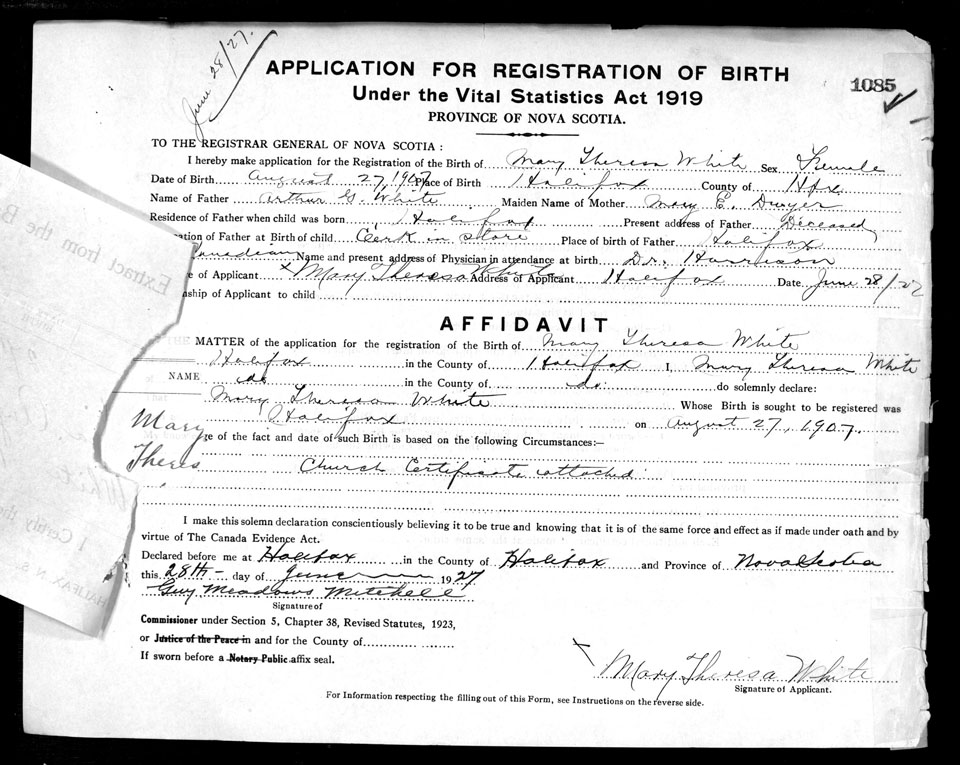 June 28/27.
APPLICATION FOR REGISTRATION OF BIRTH
1085
Under the Vital Statistics Act 1919
PROVINCE OF NOVA SCOTIA.
TO THE REGISTRAR GENERAL OF NOVA SCOTIA :
I hereby make application for the Registration of the Birth of Mary Theresa White Sex Female
Date of Birth August 27, 1907 Place of Birth Halifax County of Hfx
Name of Father Arthur G. White Maiden Name of Mother Mary E. Dwyer
Residence of Father when child was born Halifax Present address of Father Deceased
ation of Father at Birth of child Clerk in store Place of birth of Father Halifax
Canadian Name and present address of Physician in attendance at birth Dr. Harrison
e of Applicant x Mary Theresa White Address of Applicant Halifax Date June 28/27
ship of Applicant to child
AFFIDAVIT
THE MATTER of the application for the registration of the Birth of Mary Theresa White
Halifax in the County of Halifax I, Mary Theresa White
NAME do in the County of do. do solemnly declare:
Mary Theresa White Whose Birth is sought to be registered was
Halifax on August 27, 1907.
Mary
ge of the fact and date of such Birth is based on the following Circumstances:—
Theres Church Certificate attached
I make this solemn declaration conscientiously believing it to be true and knowing that it is of the same force and effect as if made under oath and by
virtue of The Canada Evidence Act.
Declared before me at Halifax in the County of Halifax and Province of Nova Scotia
this 28th day of June 1927
Guy Meadows Mitchell
Signature of
Commissioner under Section 5, Chapter 38, Revised Statutes, 1923,
or Justice of the Peace in and for the County of
If sworn before a Notary Public affix seal.
x Mary Theresa White
Signature of Applicant.
For Information respecting the filling out of this Form, see Instructions on the reverse side.
Extract from the
I Certify the
HALIFAX